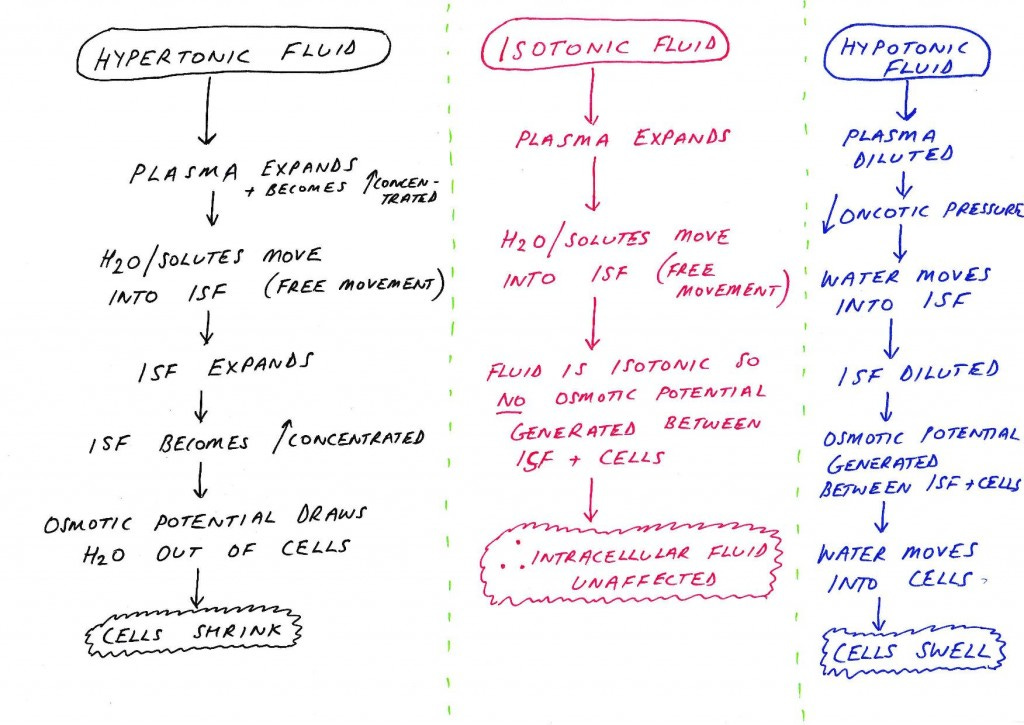 HYPERTONIC FLUID
PLASMA EXPANDS
+ BECOMES ↑CONCEN-
TRATED
H2O/SOLUTES MOVE
INTO ISF (FREE MOVEMENT)
ISF EXPANDS
ISF BECOMES ↑CONCENTRATED
OSMOTIC POTENTIAL DRAWS
H2O OUT OF CELLS
CELLS SHRINK
ISOTONIC FLUID
PLASMA EXPANDS
H2O/SOLUTES MOVE
INTO ISF (FREE
MOVEMENT)
FLUID IS ISOTONIC SO
NO OSMOTIC POTENTIAL
GENERATED BETWEEN
ISF + CELLS
∴ INTRACELLULAR FLUID
UNAFFECTED
HYPOTONIC
FLUID
PLASMA
DILUTED
↓ ONCOTIC PRESSURE
WATER MOVES
INTO ISF
ISF DILUTED
OSMOTIC POTENTIAL
GENERATED
BETWEEN ISF + CELLS
WATER MOVES
INTO CELLS
CELLS SWELL